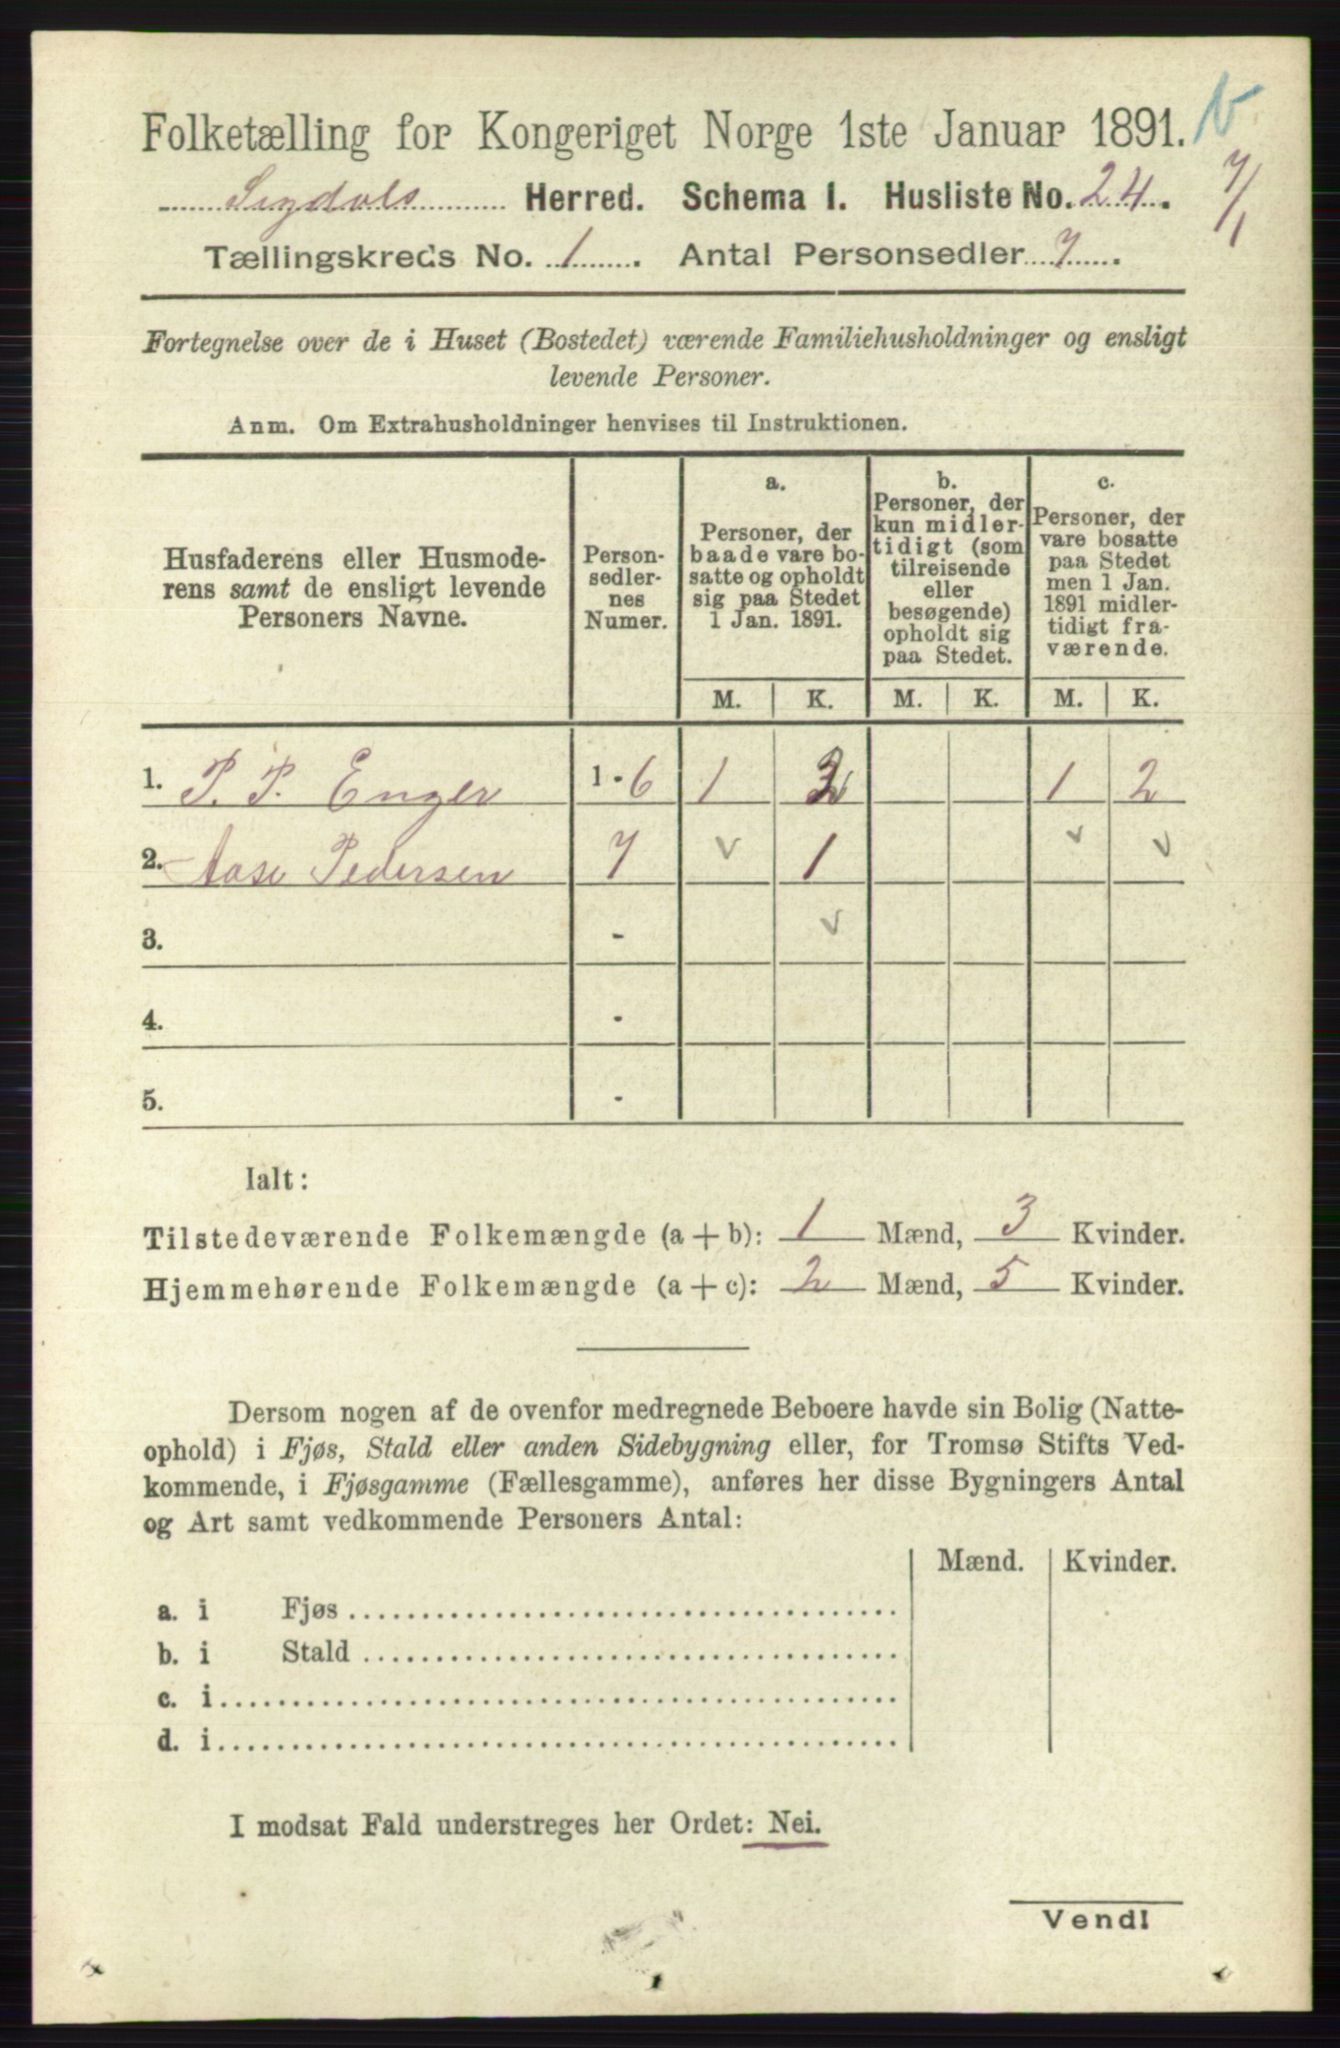 Folketælling for Kongeriget Norge 1ste Januar 1891.
Sigdals Herred. Schema I. Husliste No. 24.
7/1
Tællingskreds No. 1. Antal Personsedler 7.
Fortegnelse over de i Huset (Bostedet) værende Familiehusholdninger og ensligt
levende Personer.
Anm. Om Extrahusholdninger henvises til Instruktionen.
Husfaderens eller Husmode-
rens samt de ensligt levende
Personers Navne.
Person-
sedler-
nes
Numer.
a.
Personer, der
baade vare bo-
satte og opholdt
sig paa Stedet
1 Jan. 1891.
b.
Personer, der
kun midler-
tidigt (som
tilreisende
eller
besøgende)
opholdt sig
paa Stedet.
c.
Personer, der
vare bosatte
paa Stedet
men 1 Jan.
1891 midler-
tidigt fra-
værende.
M. K. M. K. M. K.
1. P. P. Enger 1-6 1 2 1 2
2. Aase Pedersen 7 v 1 v v
3. - v
4. -
5. -
Ialt:
Tilstedeværende Folkemængde (a+b): 1 Mænd, 3 Kvinder.
Hjemmehørende Folkemængde (a+c): 2 Mænd, 5 Kvinder.
Dersom nogen af de ovenfor medregnede Beboere havde sin Bolig (Natte-
ophold) i Fjøs, Stald eller anden Sidebygning eller, for Tromsø Stifts Ved-
kommende, i Fjøsgamme (Fællesgamme), anføres her disse Bygningers Antal
og Art samt vedkommende Personers Antal:
Mænd. Kvinder.
a. i Fjøs
b. i Stald
c. i
d. i
I modsat Fald understreges her Ordet: Nei.
Vend!